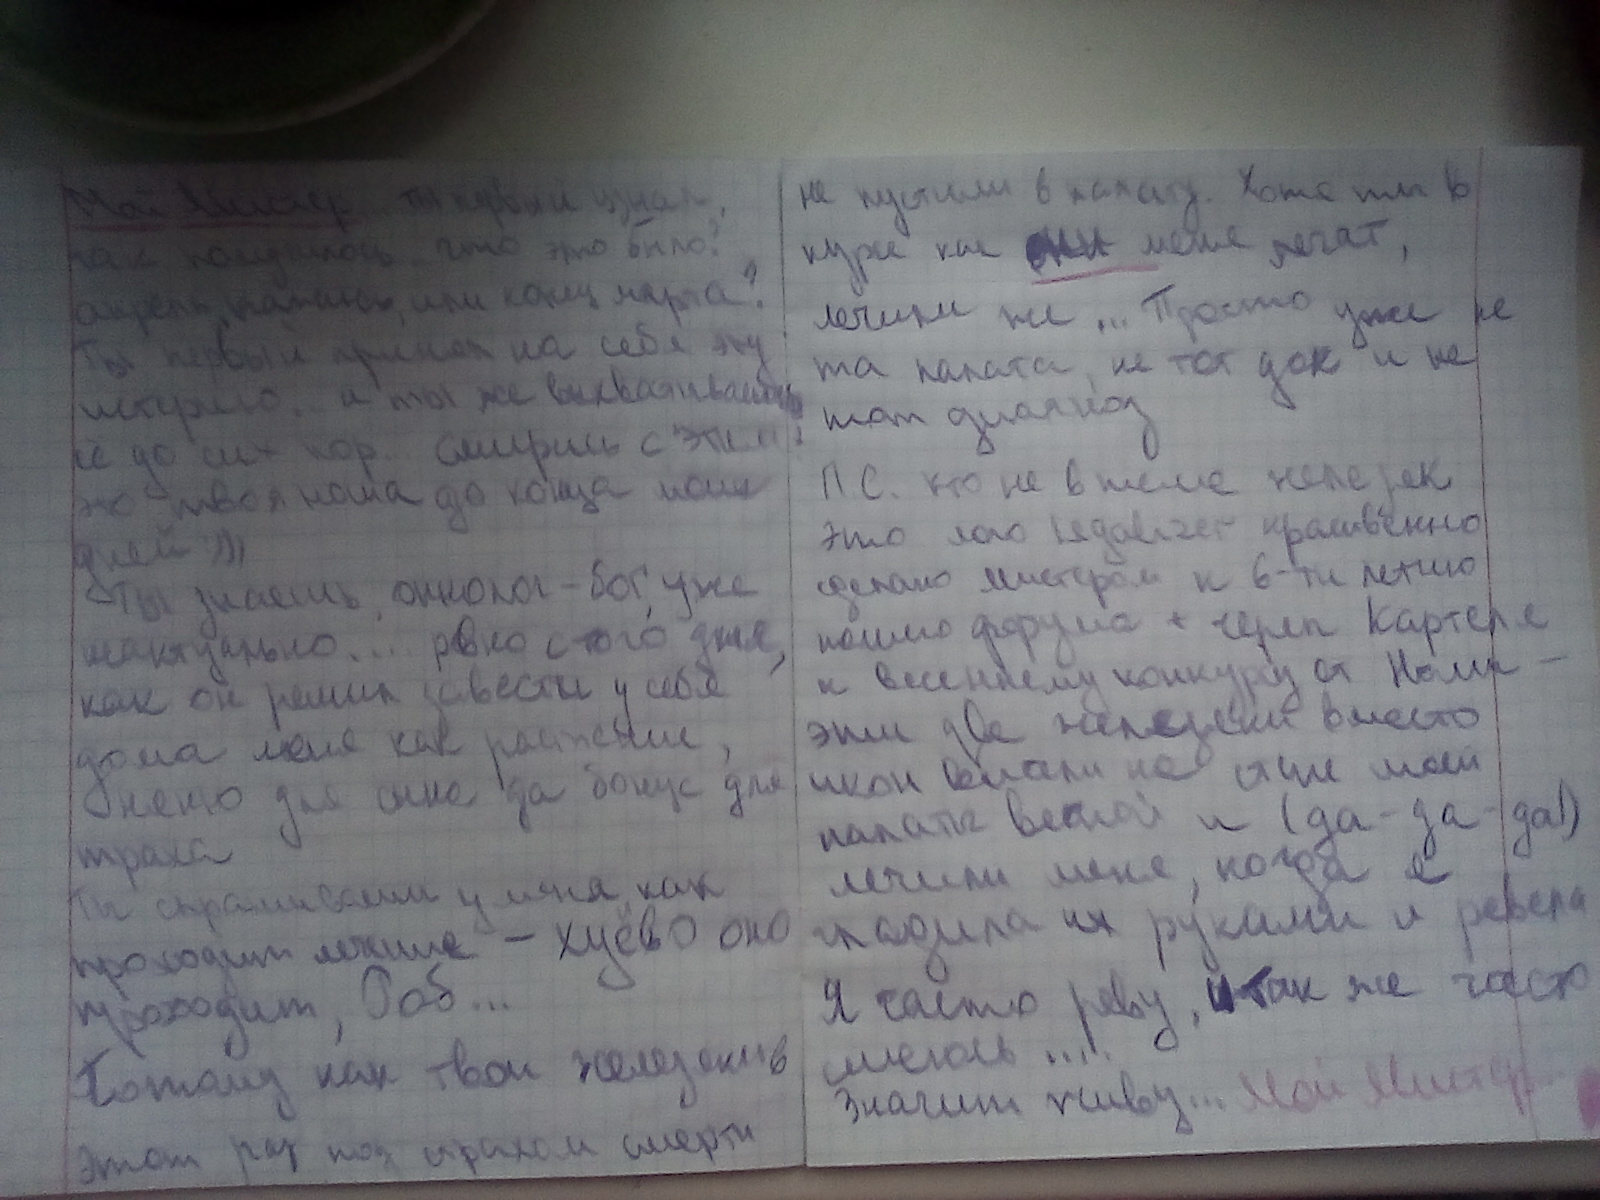 Мой Мистер.. ты первый узнал,
как получилось.. что это было?
апрель, или конец марта?
Ты первый принял на себя эту
историю.. и ты же
её до сих пор.. смирись с этим:
это твоя ноша до конца моих
дней )))
Ты знаешь, онколог-бог, уже
неактуально... ровно с того дня,
как он решил завести у себя
дома меня как растение,
няню для сына да бонус для
траха
Ты спрашиваешь у меня, как
проходит лечение - хуёво оно
проходит, Роб...
Потому как твои железяки в
этот раз под страхом смерти
не пустили в палату. Хотя ты в
курсе как они меня лечат,
лечили же... Просто уже не
та палата, не тот док и не
тот диагноз
П.С. кто не в теме железяк
это лого собственно
сделано мистером к 6-ти летию
нашего форума + череп Картеля
к весеннему конкурсу от Ноли -
эти две железяки вместо
икон висели на стене моей
палаты весной и (да-да-да!)
лечили меня, когда я
гладила их руками и ревела
Я часто реву, и так же часто
смеюсь.....
Значит живу... Мой Мистер..